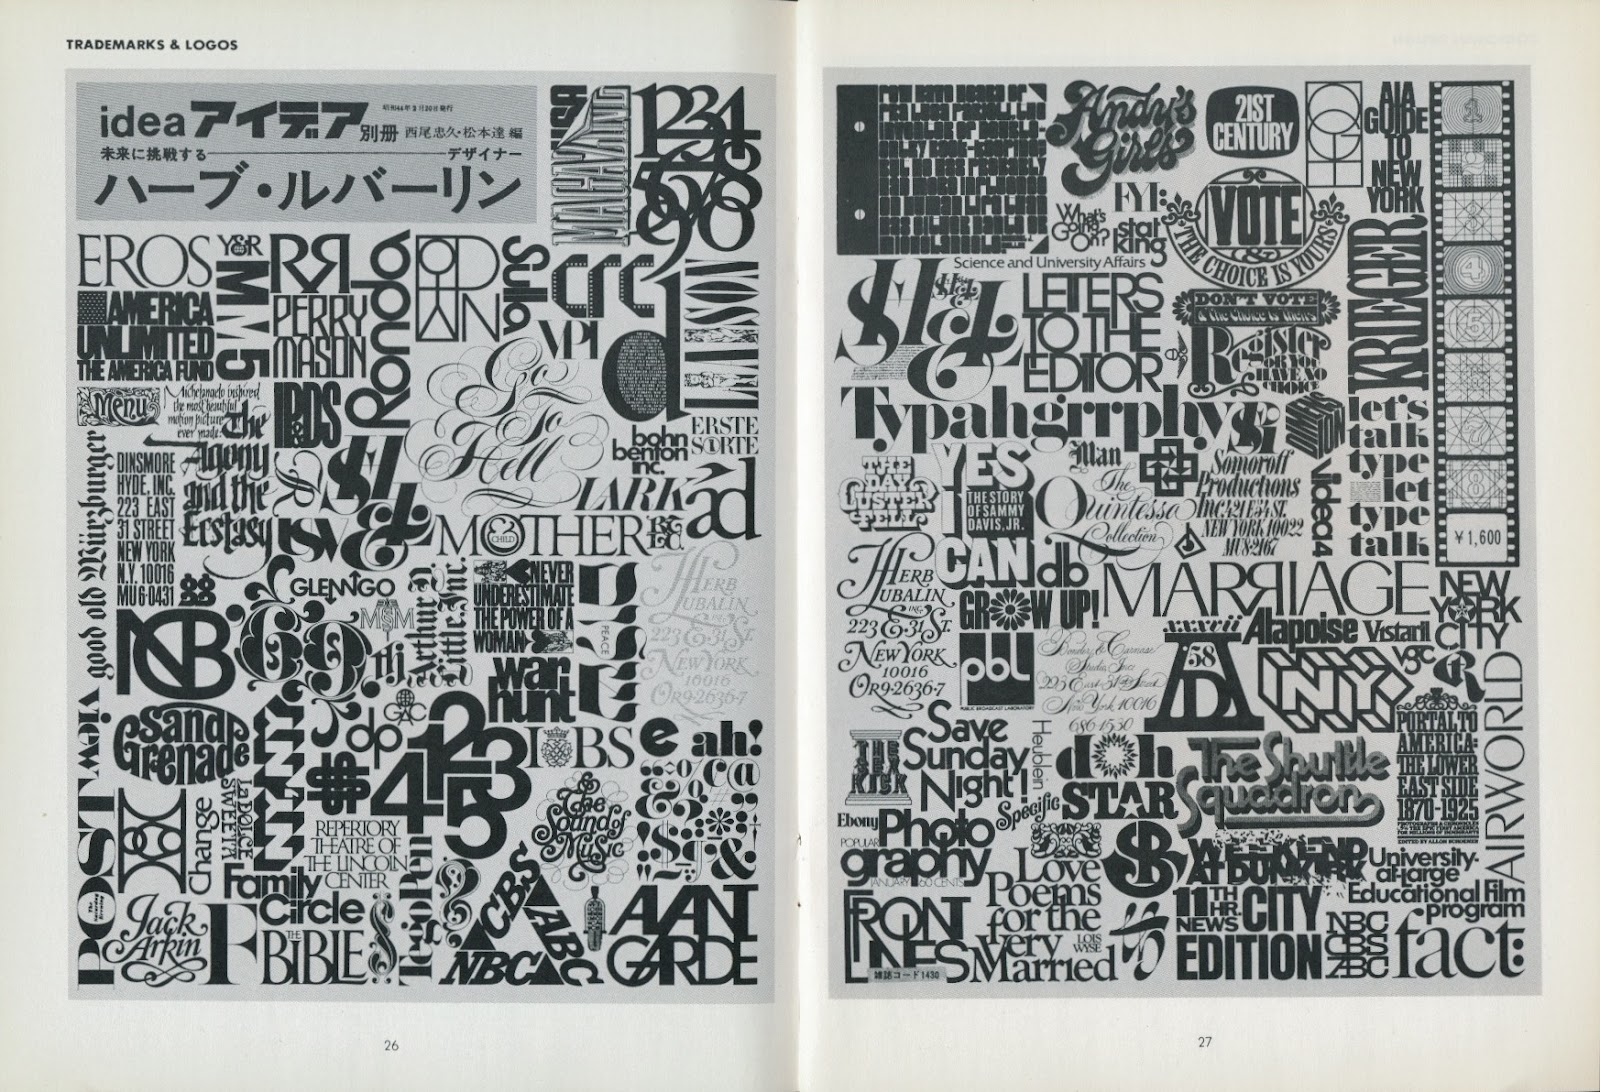 TRADEMARKS & LOGOS
idea アイデア 別冊
昭和44年3月20日発行
西尾忠久・松本達 編
未来に挑戦する——デザイナー
ハーブ・ルバーリン
MAGAZINE
USA
1234
567890
EROS
Y&R
MM5
RR
PERRY
MASON
Ronda
Sulla
VPI
AMERICA
UNLIMITED
THE AMERICA FUND
Menu
Michelangelo inspired
the most beautiful
motion picture
ever made:
The
Agony
and the
Ecstasy
Go
To
Hell
ERSTE
SORTE
bohn
benton
inc.
LARK
ad
good old Würzburger
DINSMORE
HYDE, INC.
223 EAST
31 STREET
NEW YORK
N.Y. 10016
MU 6·0431
MOTHER
& CHILD
GLENNGO
MSM
Arthur A
Little.Inc.
NEVER
UNDERESTIMATE
THE POWER OF A
WOMAN
PEACE
HERB
LUBALIN
INC
223 E·31 ST.
NEW YORK
10016
OR9·2636·7
69
war
hunt
VIEW
GAC
Sand
Grenade
dp
12345
IOBS
e
ah!
POST
The Saturday Evening
Change
La DOLCE
SWEETIN
REPERTORY
THEATRE OF
THE LINCOLN
CENTER
The
Sound of
Music
Family
Circle
Jack
Arkin
THE
BIBLE
Tego Pen
CBS
ABC
NBC
AVANT
GARDE
26
Andy's
Girls
21ST
CENTURY
AIA
GUIDE
TO
NEW
YORK
FYI:
What's
Going
On?
stat
king
VOTE
&
THE CHOICE IS YOURS
Science and University Affairs
LETTERS
TO THE
EDITOR
DON'T VOTE
& The Choice is Theirs
Register
OR YOU
HAVE NO
CHOICE
KRIEGER
1
2
3
4
5
7
8
¥1,600
Typahgrrphy
let's
talk
type
let
type
talk
THE
DAY
CUSTER
FELL
YES
I
CAN
THE STORY
OF SAMMY
DAVIS, JR.
Man
The
Quintessa
Collection
Somoroff
Productions
Inc. 421 E 54 ST.
NEW YORK 10022
MU 8·2167
Video 4
HERB
LUBALIN
INC
223 E·31 ST.
NEW YORK
10016
OR9·2636·7
db
GROW UP!
MARRIAGE
NEW
YORK
CITY
pbl
PUBLIC BROADCAST LABORATORY
Bonder & Carnase
Studio, Inc.
223 East 31st Street
New York, 10016
686-1530
xxxvii
'58
Alapoise
Vistaril
V3C
NY
THE
SEX
KICK
Save
Sunday
Night!
Heublein
Specific
doh
STAR
The Shuttle
Squadron
PORTAL TO
AMERICA:
THE LOWER
EAST SIDE
1870-1925
PHOTOGRAPHS & CHRONICLES
EDITED BY ALLON SCHOENER
AIRWORLD
Ebony
POPULAR
Photo
graphy
JANUARY 60 CENTS
Love
Poems
for the
very
Married
LOIS
WYSE
FRONT
LINES
雑誌コード1430
SB
11TH
HR.
NEWS
CITY
EDITION
University-
at-large
Educational Film
program
NBC
CBS
ABC
fact:
27